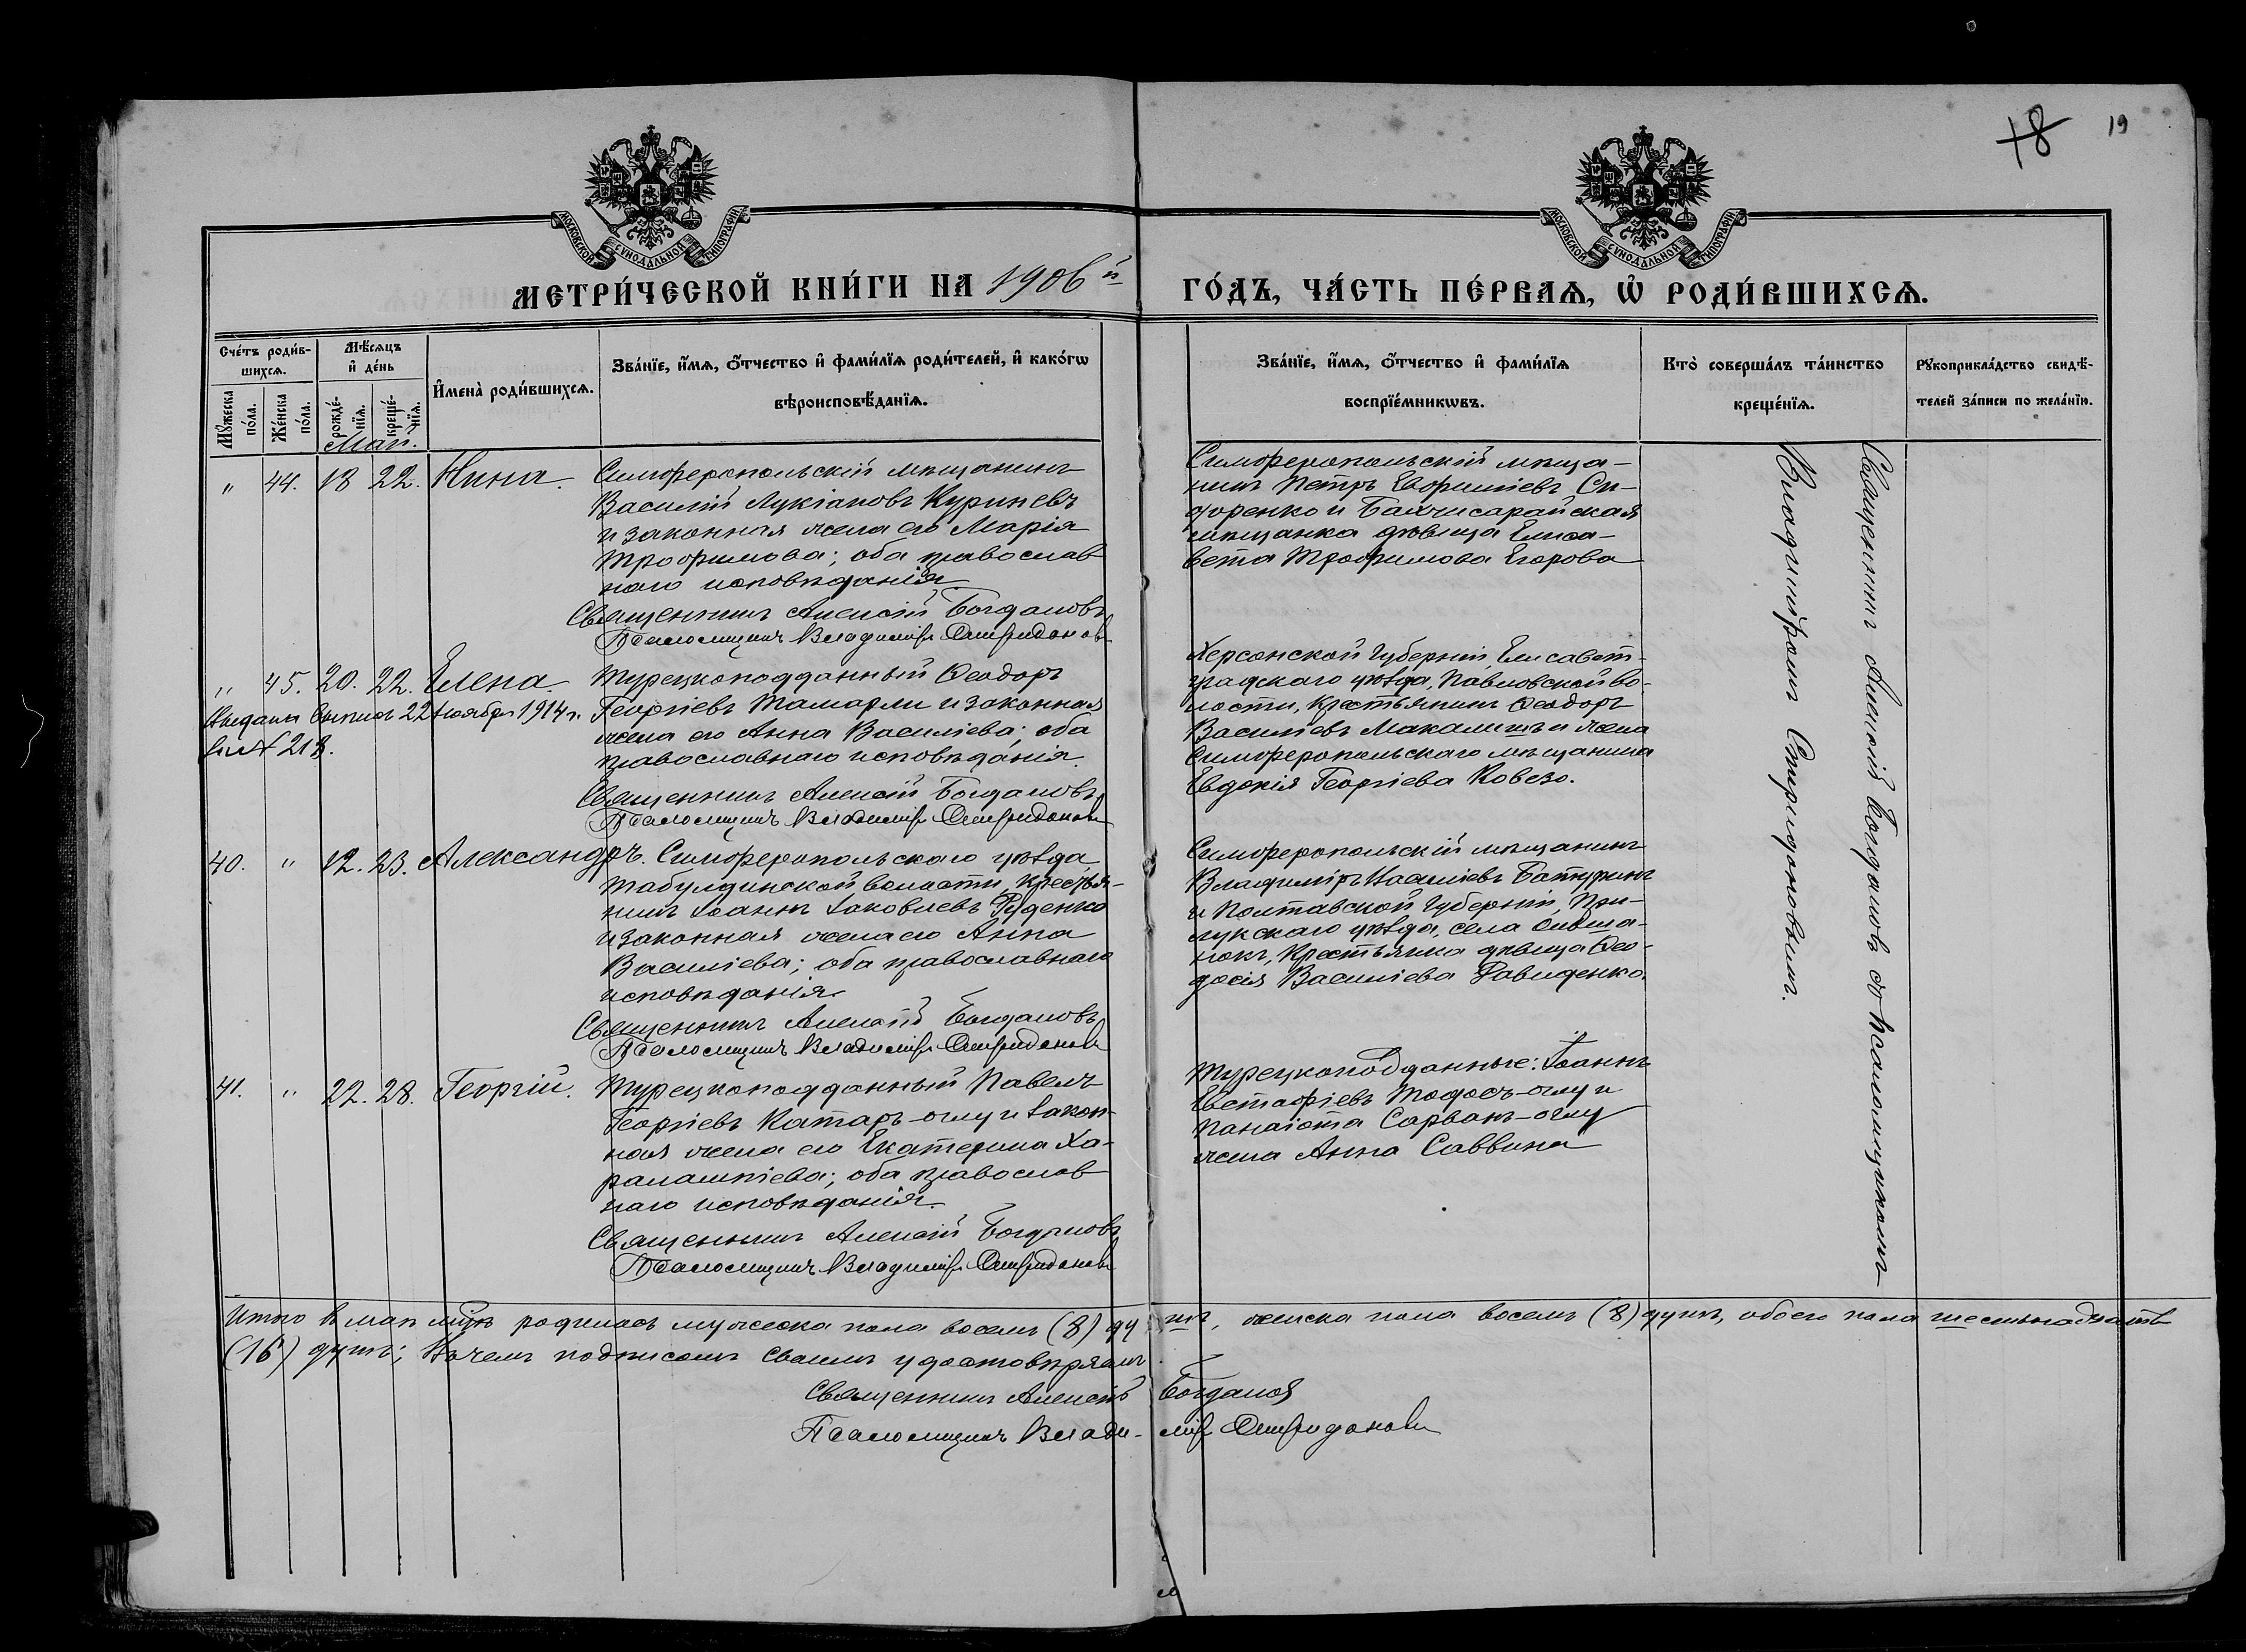 18 19
МОСКОВСКОЙ СУНОДАЛЬНОЙ ТИПОГРАФІИ
МОСКОВСКОЙ СУНОДАЛЬНОЙ ТИПОГРАФІИ
МЕТРИ́ЧЕСКОЙ КНИ́ГИ НА 1906й ГО́ДЪ, ЧА́СТЬ ПЕ́РВАѦ, Ѡ҆ РОДИ́ВШИХСѦ.
Сче́тъ роди́в-
шихсѧ.
Мꙋ́жеска по́ла.
Же́нска по́ла.
Мѣ́сѧцъ
и҆ де́нь
рожде́-
нїѧ.
креще́-
нїѧ.
И҆мена̀ роди́вшихсѧ.
Зва́нїе, и҆́мѧ, ѻ҆́тчество и҆ фами́лїѧ роди́телей, и҆ како́гѡ
вѣроисповѣ́данїѧ.
Зва́нїе, и҆́мѧ, ѻ҆́тчество и҆ фами́лїѧ
воспрїе́мникѡвъ.
Кто̀ соверша́лъ та́инство
креще́нїѧ.
Рꙋкоприкла́дство свидѣ́-
телей за́писи по жела́нїю.
Май.
" 44. 18 22. Нина.
Симферопольскій мѣщанинъ
Василій Лукіановъ Куриневъ
и законная жена его Марія
Трофимова; оба православ
наго исповѣданія.
Священникъ Алексій Богдановъ
Псаломщикъ Владиміръ Спиридоновъ
Симферопольскій мѣща-
нинъ Петръ Ефиміевъ Си-
доренко и Бахчисарайская
мѣщанка дѣвица Елиса-
вета Трофимова Егорова
" 45. 20. 22. Елена.
Выдана выпись 22 Ноября 1914 г.
за № 218.
Турецкоподданный Ѳеодоръ
Георгіевъ Тамарли и законная
жена его Анна Василіева; оба
православнаго исповѣданія.
Священникъ Алексій Богдановъ
Псаломщикъ Владиміръ Спиридоновъ
Херсонской Губерніи, Елисавет-
градскаго уѣзда, Павловской во-
лости, Крестьянинъ Ѳеодоръ
Василіевъ Макалишъ и жена
Симферопольскаго мѣщанина
Евдокія Георгіева Ковезо.
40. " 12. 23. Александръ.
Симферопольскаго уѣзда,
Табулдинской волости, крестья-
нинъ Іоаннъ Іаковлевъ Руденко
и законная жена его Анна
Василіева; оба православнаго
исповѣданія.
Священникъ Алексій Богдановъ
Псаломщикъ Владиміръ Спиридоновъ
Симферопольскій мѣщанинъ
Владиміръ Василіевъ Батуринъ
и Полтавской Губерніи, При-
лукскаго уѣзда, села
Крестьянка дѣвица Ѳео-
досія Василіева Давиденко.
41. " 22. 28. Георгій.
Турецкоподданный Павелъ
Георгіевъ Катаръ-оглу и закон-
ная жена его Екатерина Ха-
ралампіева; оба православ
наго исповѣданія.
Священникъ Алексій Богдановъ
Псаломщикъ Владиміръ Спиридоновъ
Турецкоподданные: Іоаннъ
Евстафіевъ Тодосъ-оглу и
Панаіота Сарванъ-оглу
жена Анна Саввина
Священникъ Алексій Богдановъ съ псаломщикомъ
Владиміромъ Спиридоновымъ.
Итого въ маѣ мѣсяцѣ родилось мужеска пола восемь (8) душъ, женска пола восемь (8) душъ, обоего пола шестьнадцать
(16) душъ; въ чемъ подписомъ своимъ удостовѣряемъ.
Священникъ Алексій Богдановъ
Псаломщикъ Владиміръ Спиридоновъ